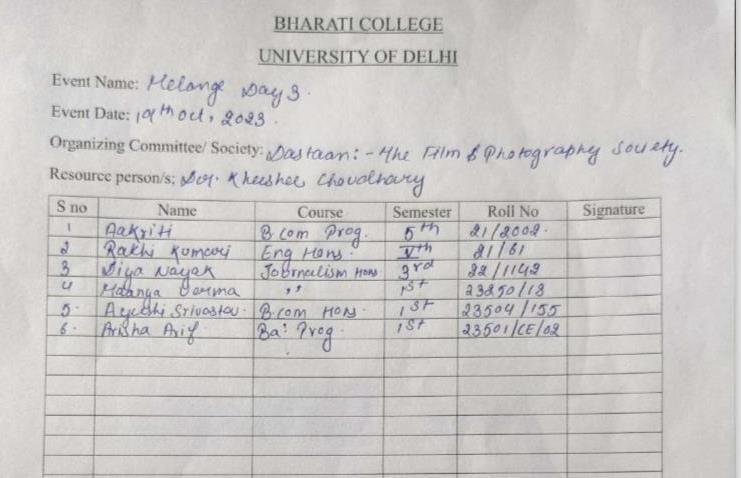 BHARATI COLLEGE
UNIVERSITY OF DELHI
Event Name: Melange Day 3.
Event Date: 19th Oct, 2023.
Organizing Committee/ Society: Dastaan:- The Film & Photography Society.
Resource person/s: Dr. Kheeshee Choudhary
S no Name Course Semester Roll No Signature
1 Aakriti B.Com Prog. 5th 21/2002.
2 Rakhi Kumari Eng Hons. Vth 21/61
3 Diya Nayak Journalism Hons 3rd 22/1142
4 Verma ,, 1st 23250/13
5. Ayushi Srivastav. B.com HONS. 1st 23504/155
6. Arisha Arif Ba. Prog. 1st 23501/CE/02